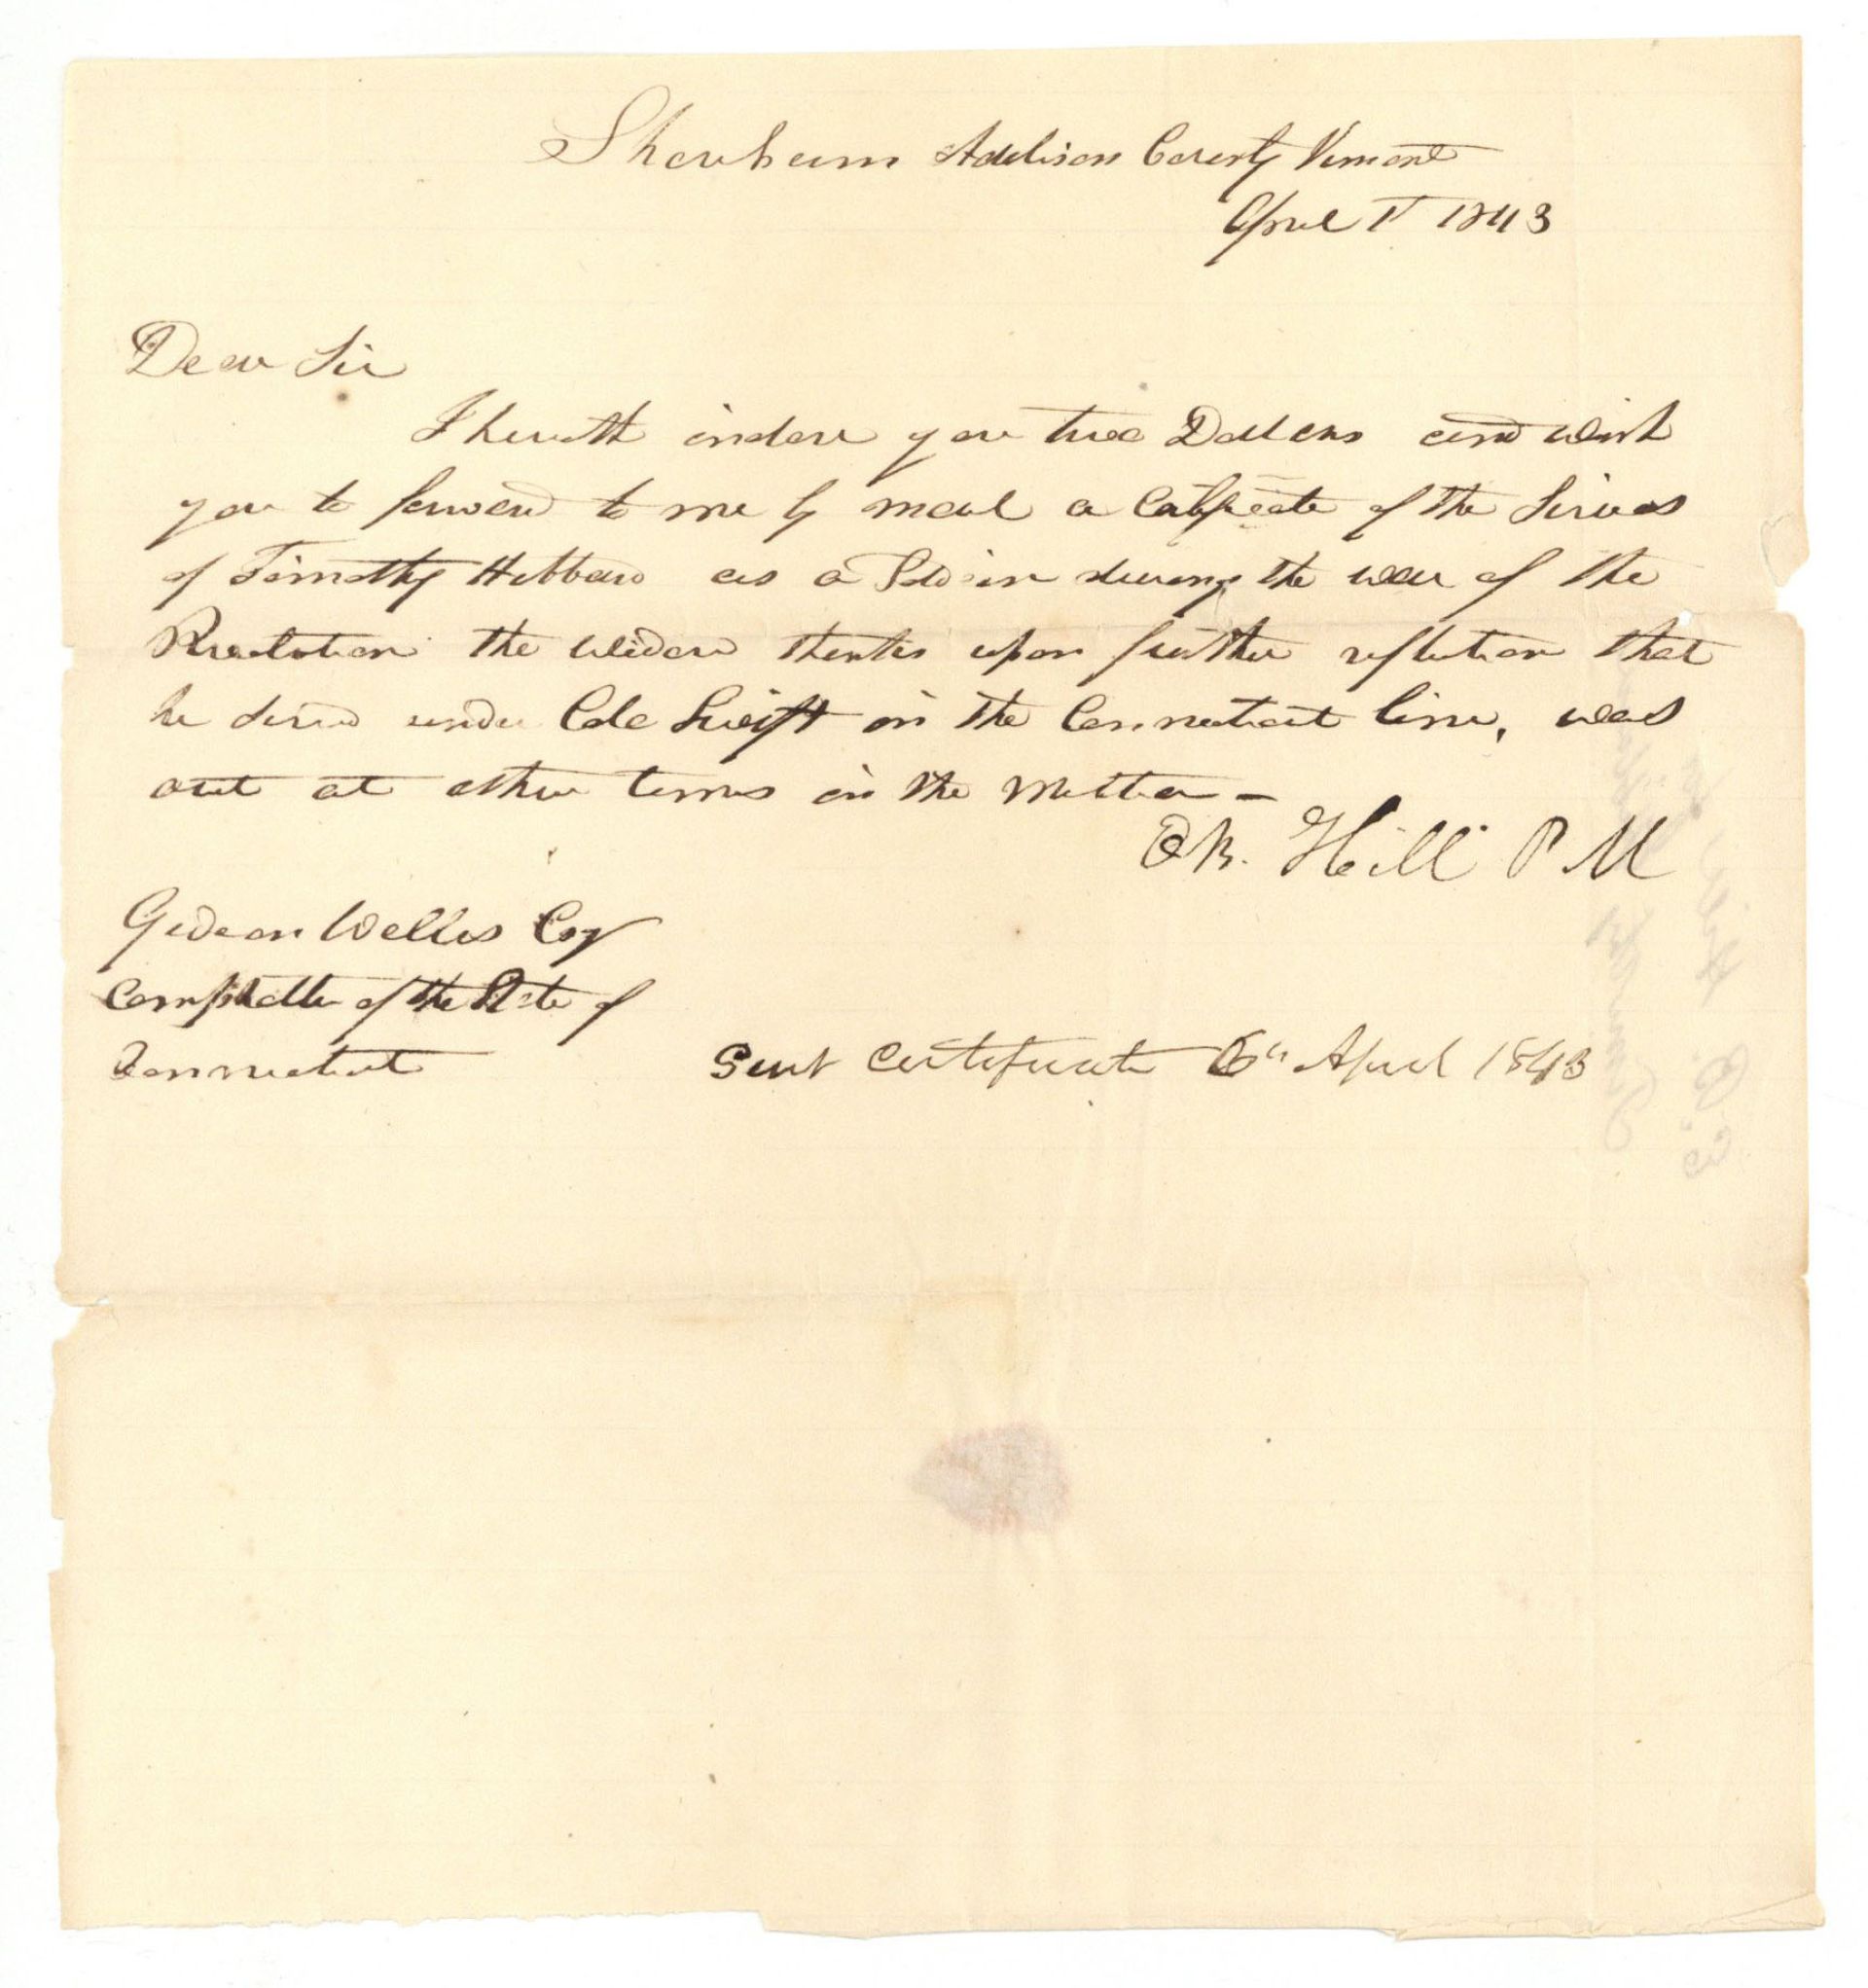 Shoreham Addison County Vermont
April 1st 1843
Dear Sir
I herewith inclose you two Dollars and wish
you to forward to me by mail a Certificate of the Servies
of Timothy Hebbard as a Soldier during the war of the
Revolution the widow thinks upon further reflection that
he served under Colo Swift in the Connecticut line, was
out at other times in the Militia -
Hill P M
Gideon Welles Esq
Comptroller of the State of
Connecticut
Sent Certificate 6th April 1843